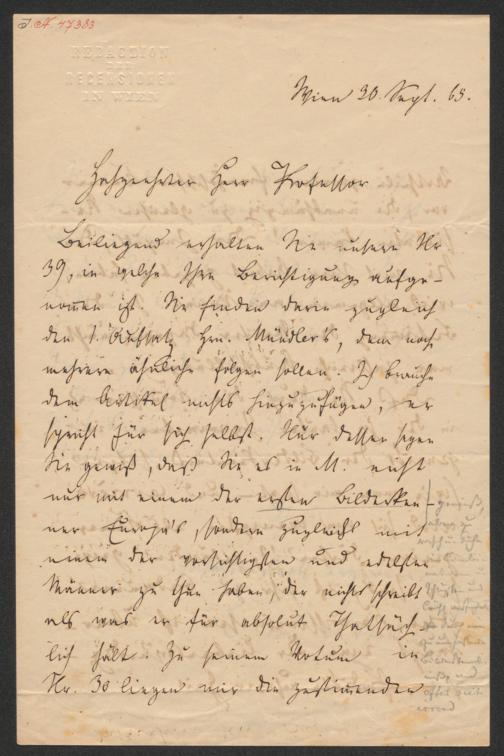 J. N. 47383
REDACTION
DER
RECENSIONEN
IN WIEN
Wien 30. Sept. 65.
Hochgeehrter Herr Professor
Beiliegend erhalten Sie unsere Nr
39, in welche Ihre Berichtigung aufge-
nommen ist. Sie finden darin zugleich
den 1. Aufsatz Hrn. Mündler's, dem noch
mehrere ähnliche folgen sollen. Ich brauche
dem Artikel nichts hinzuzufügen, er
spricht für sich selbst. Nur dessen seyen
Sie gewiß, daß Sie es in M. nicht
nur mit einem der ersten Bilderken-
ner Europa's, sondern zugleich mit
einem der vorsichtigsten und edelsten
Männer zu thun haben, der nichts schreibt
als was er für absolut Thatsäch-
lich hält. Zu seinem Votum in
Nr. 30 liegen mir die zustimmenden